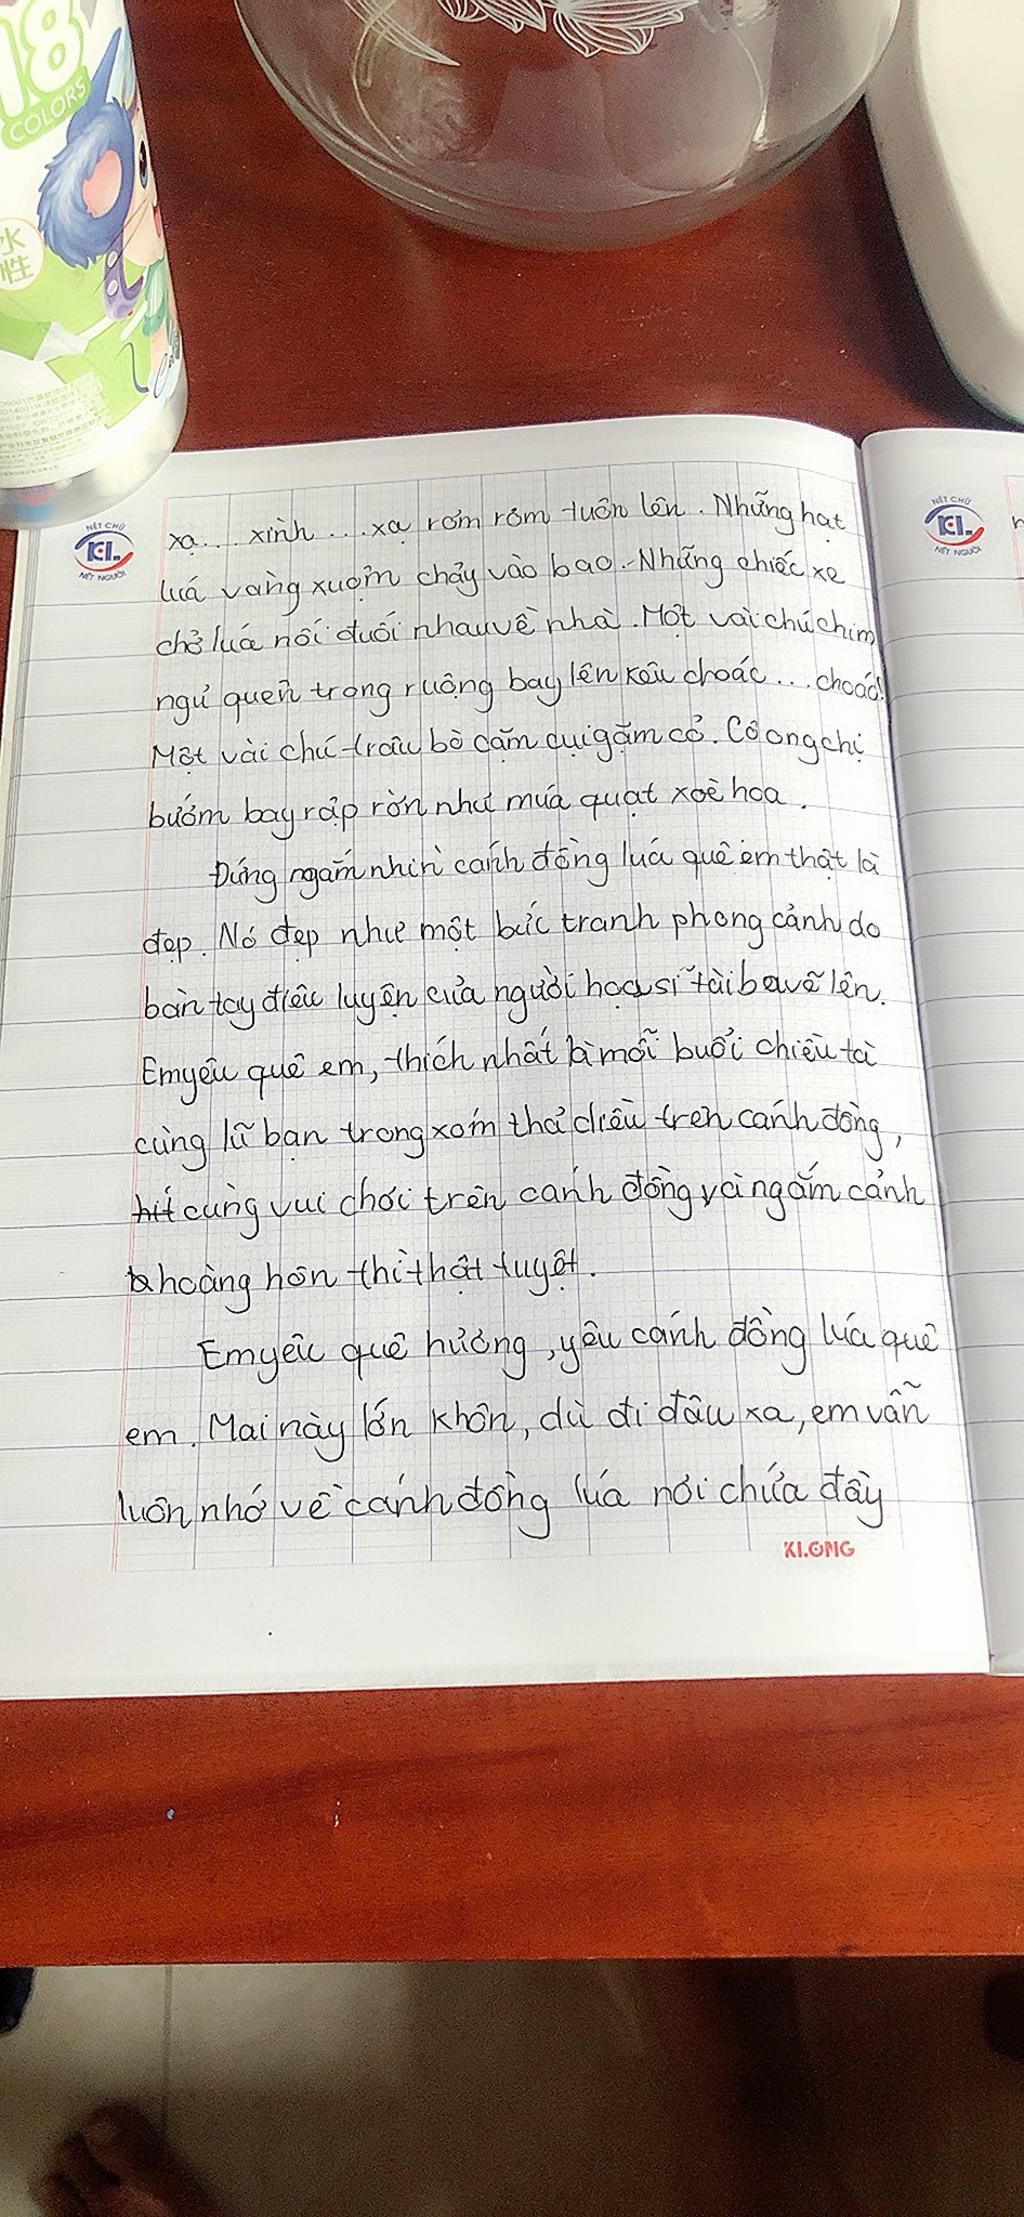 18
COLORS
水
性
NÉT CHỮ
KL
NẾT NGƯỜI
NÉT CHỮ
KL
NẾT NGƯỜI
xạ... xình ... xạ rơm rơm tuôn lên. Những hạt
luá vàng xuộm chảy vào bao. Những chiếc xe
chở luá nối đuôi nhau về nhà. Một vài chú chim
ngủ quên trong ruộng bay lên kêu choác ... choác!
Một vài chú trâu bò cặm cụi gặm cỏ. Cô ong chị
bướm bay rập rờn như múa quạt xoè hoa.
Đứng ngắm nhìn cánh đồng luá quê em thật là
đẹp. Nó đẹp như một bức tranh phong cảnh do
bàn tay điêu luyện của người hoạ sĩ tài ba vẽ lên.
Em yêu quê em, thích nhất là mỗi buổi chiều tà
cùng lũ bạn trong xóm thả diều trên cánh đồng,
hít cùng vui chơi trên cánh đồng và ngắm cảnh
hoàng hôn thì thật tuyệt.
Em yêu quê hương, yêu cánh đồng lúa quê
em. Mai này lớn khôn, dù đi đâu xa, em vẫn
luôn nhớ về cánh đồng lúa nơi chứa đầy
KLONG